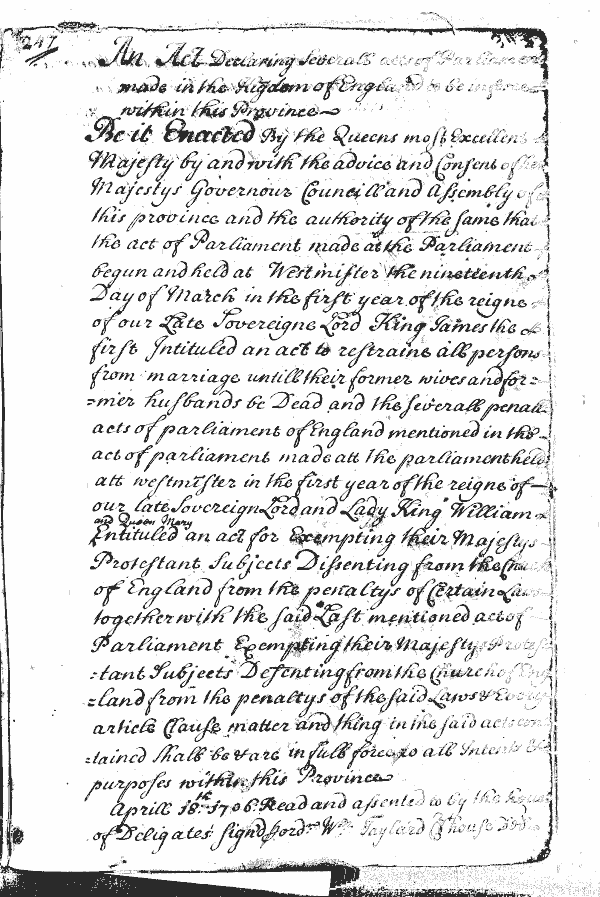 247
An Act Declaring Severall acts of Parliament
made in the Kigdom of England to be in force
within this Province
Be it Enacted By the Queens most Excellent
Majesty by and with the advice and Consent of her
Majestys Governour Councill and Assembly of
this province and the authority of the same that
the act of Parliament made at the Parliament
begun and held at Westmister the nineteenth
Day of March in the first year of the reigne
of our Late Sovereigne Lord King James the
first Intituled an act to restraine all persons
from marriage untill their former wives and for=
=mer husbands be Dead and the severall penall
acts of parliament of England mentioned in the
act of parliament made att the parliament held
att westmister in the first year of the reigne of
our late Sovereign Lord and Lady King William
and Queen Mary
Entituled an act for Exempting their Majestys
Protestant Subjects Dissenting from the Church
of England from the penaltys of Certain Laws
together with the said Last mentioned act of
Parliament Exempting their Majestys Protes
=tant Subjects Desenting from the Church of Eng
=land from the penaltys of the said Laws & Every
article Clause matter and thing in the said acts con
=tained shall be & are in full force to all Intents &
purposes within this Province
Aprill 18th 1706 Read and assented to by the house
of Deligates signd Wm Taylard house